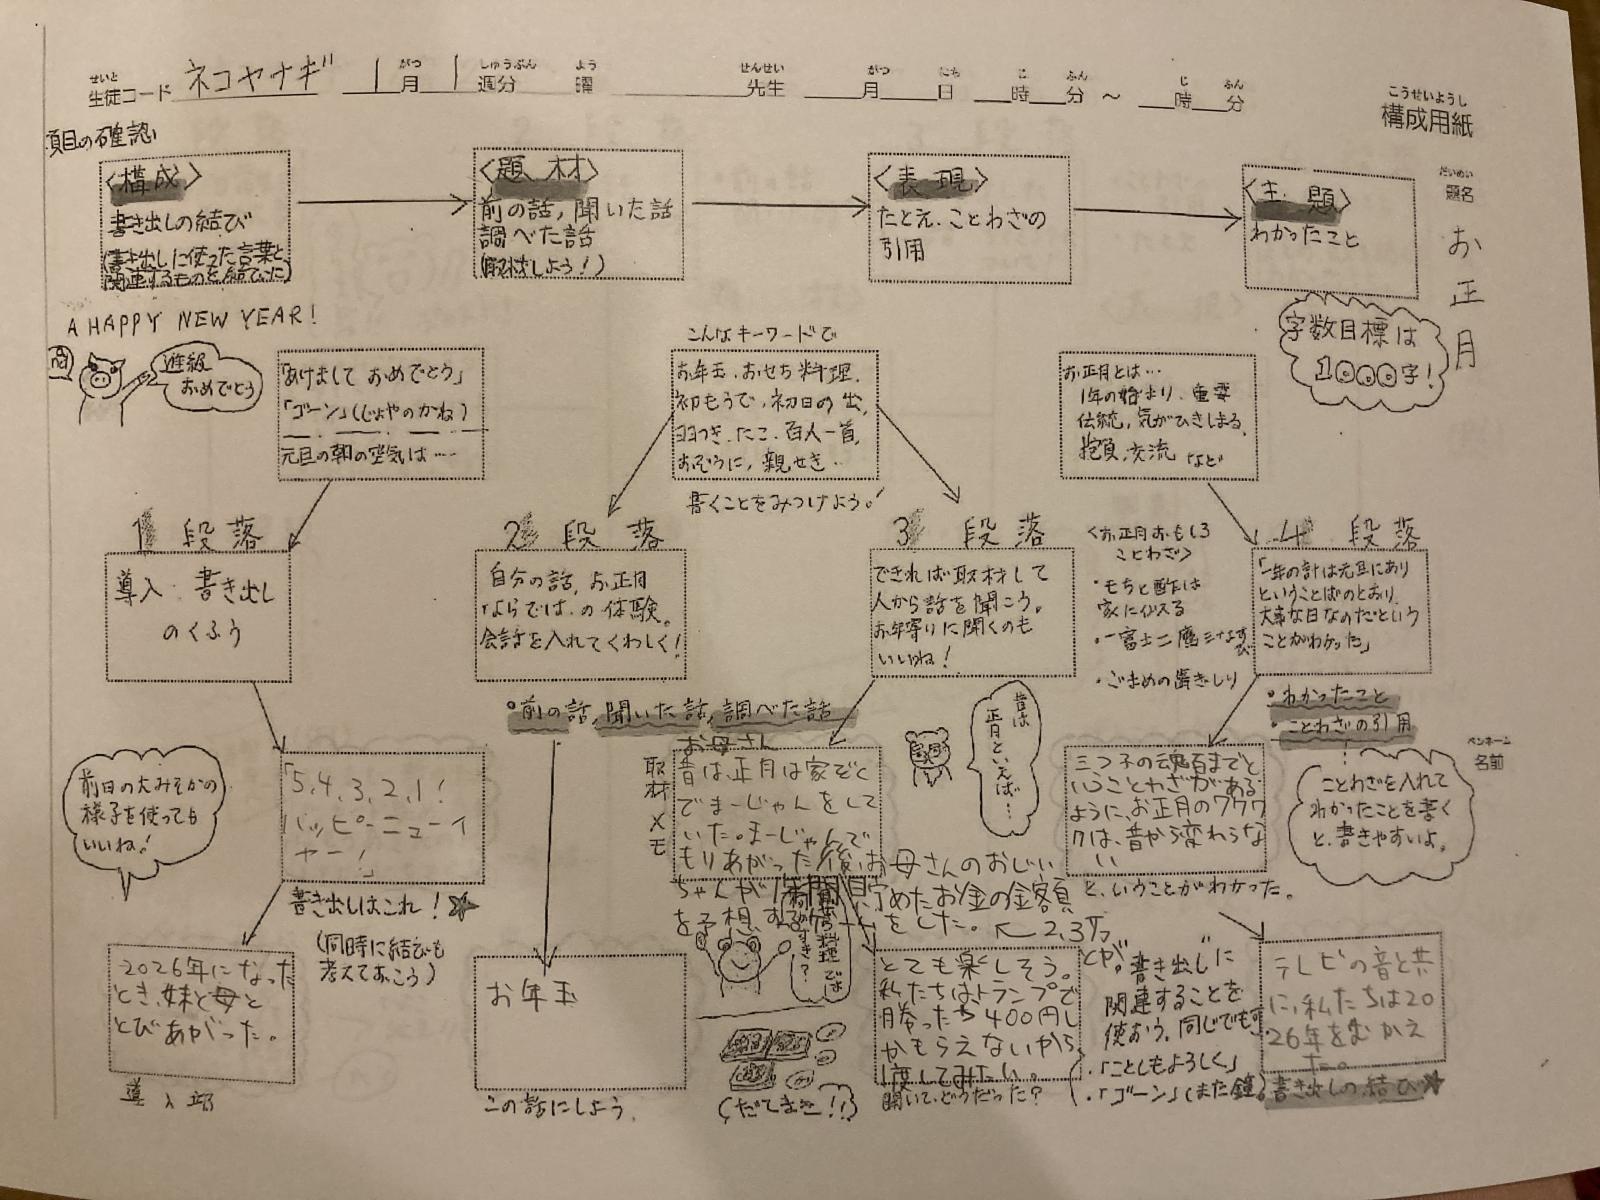 せいと がつ しゅうぶん よう せんせい がつ にち じ ふん じ ふん
生徒コード ネコヤナギ 1月 1週分 曜 先生 月 日 時 分 〜 時 分
こうせいようし
構成用紙
だいめい
題名
お正月
項目の確認
〈構成〉
書き出しの結び
(書き出しに使った言葉と
関連するものを
〈題材〉
前の話,聞いた話
調べた話
(取材しよう!)
〈表現〉
たとえ、ことわざの
引用
〈主題〉
わかったこと
字数目標は
1000字!
A HAPPY NEW YEAR!
進級
おめでとう
「あけまして おめでとう」
「ゴーン」(じょやのかね)
元旦の朝の空気は……
こんなキーワードで
お年玉、おせち料理、
初もうで、初日の出、
羽つき、たこ、百人一首、
おぞうに、親せき…
書くことをみつけよう!
お正月とは…
1年の始まり、重要
伝統、気がひきしまる、
抱負、交流 など
1段落
導入・書き出し
のくふう
2段落
自分の話、お正月
ならではの体験。
会話を入れてくわしく!
3段落
できれば取材して
人から話を聞こう。
お年寄りに聞くのも
いいね!
〈お正月おもしろ
ことわざ〉
・もちと酢は
家に
・一富士二鷹三なすび
・ごまめの歯ぎしり
4段落
「一年の計は元旦にあり
ということばのとおり、
大事な日なのだという
ことがわかった」
・わかったこと
・ことわざの引用
・前の話,聞いた話,調べた話
ペンネーム
名前
前日の大みそかの
様子を使っても
いいね!
「5,4,3,2,1!
ハッピーニューイ
ヤー!」
書き出しはこれ!☆
(同時に結びも
考えておこう)
2026年になった
とき、妹と母と
とびあがった。
導入部
お年玉
この話にしよう。
取材メモ
お母さん
昔は、正月は家ぞく
でまーじゃんをして
いた。まーじゃんで
もりあがった後、お母さんのおじい
ちゃんが1年間貯めたお金の金額
を予想する
をした。
2,3万
とか。
昔は
正月といえば…
(だてまき!!)
とても楽しそう。
私たちはトランプで
勝ったら400円し
かもらえないから、
1度してみたい。
聞いて、どうだった?
三つ子の魂百までと
いうことわざがある
ように、お正月のワクワ
クは、昔から変わらな
い
と、いうことがわかった。
ことわざを入れて
わかったことを書く
と、書きやすいよ。
"書き出し"に
関連することを
使おう。同じでも可
・「ことしもよろしく」
・「ゴーン」(また鐘)
テレビの音と共
に、私たちは20
26年をむかえ
た。
書き出しの結び☆